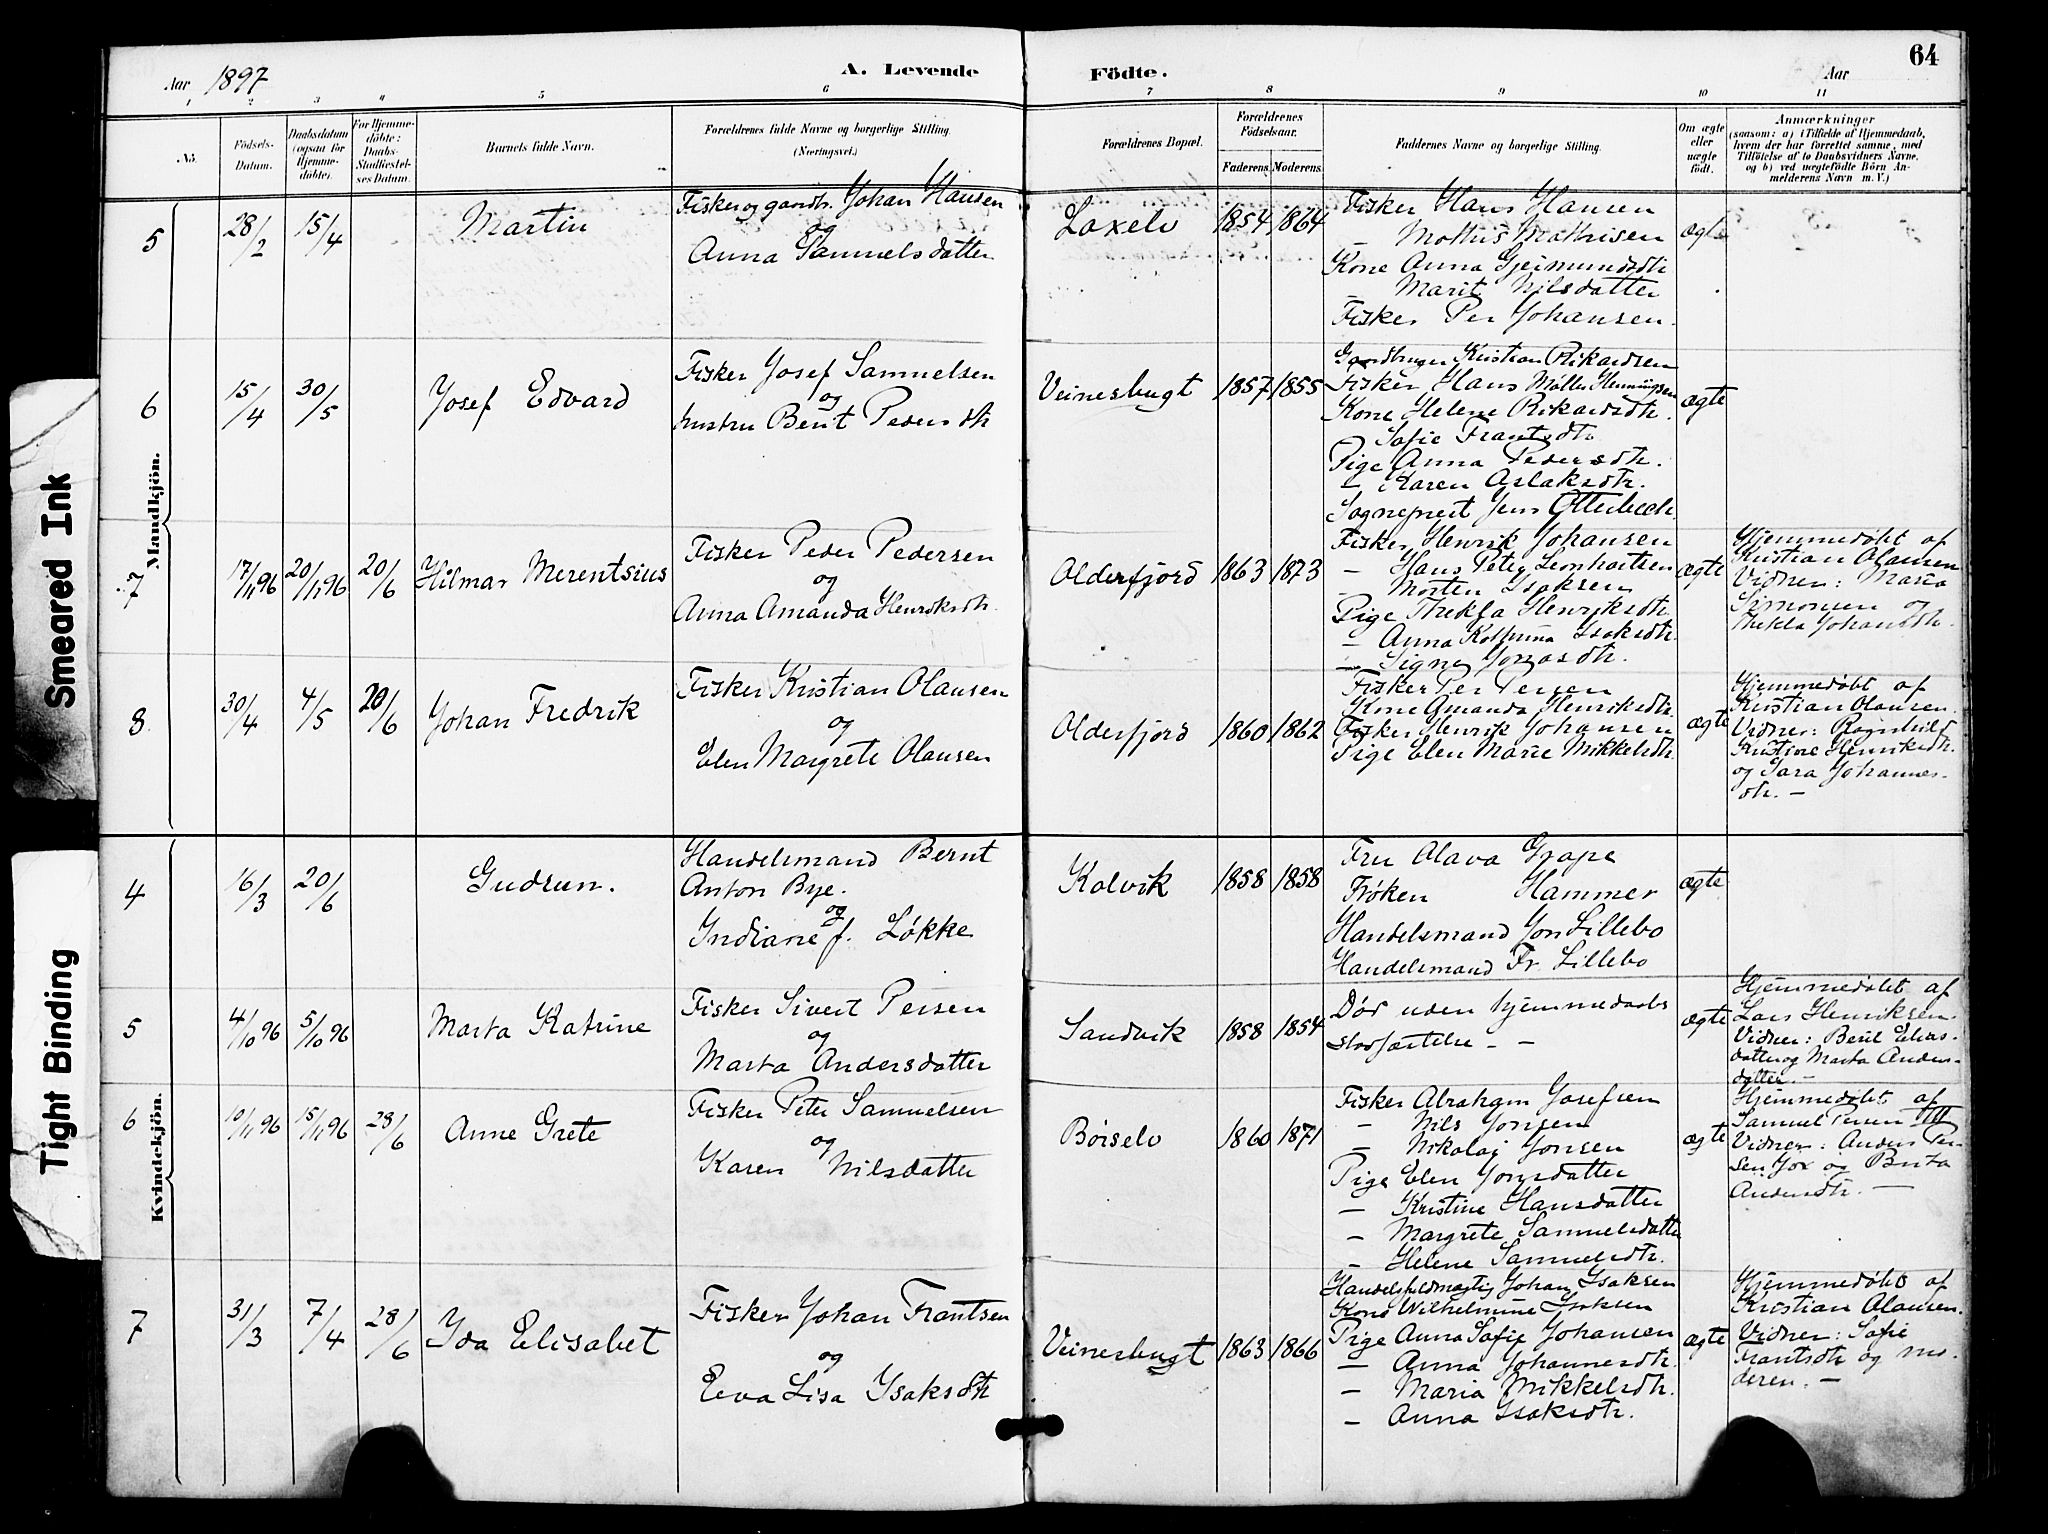 64
Aar 1897
A. Levende Födte.
Aar
1 2 3 4 5 6 7 8 8 9 10 11
No.
Födsels-
Datum.
Daabsdatum
(ogsaa for
Hjemme-
döbte).
For Hjemme-
döbte:
Daabs-
Stadfæstel-
ses Datum.
Barnets fulde Navn.
Forældrenes fulde Navne og borgerlige Stilling.
(Næringsvei.)
Forældrenes Bopæl.
Forældrenes
Födselsaar.
Faderens Moderens
Faddernes Navne og borgerlige Stilling.
Om ægte
eller
uægte
født.
Anmærkninger
(saasom: a) i Tilfælde af Hjemmedaab,
hvem der har forrettet samme, med
Tilföielse af to Daabsvidners Navne,
og b) ved uægtefödte Börn An-
melderens Navn m. V.)
Mandkjön.
5
28/2
15/4
Martin
Fisker og gaardbr. Johan Hansen
og
Anna Samuelsdatter
Laxelv
1854
1864
Fisker Hans Hansen
– Mathis Mathisen
Kone Anna Gjeimundsdtr
– Marit Nilsdatter
Fisker Per Johansen.
ægte
6
15/4
30/5
Josef Edvard
Fisker Josef Samuelsen
og
hustru Berit Pedersdtr
Veinesbugt
1857
1855
Gaardbruger Kristian Rikardsen
Fisker Hans Møller Henningsen
Kone Helene Rikardsdtr.
Sofie Frantsdtr
Pige Anna Pedersdtr.
– Karen Aslaksdtr.
Sogneprest Jens Otterbech.
ægte
7
17/11 96
20/11 96
20/6
Hilmar Merentsius
Fisker Peder Pedersen
og
Anna Amanda Henriksdtr.
Olderfjord
1863
1873
Fisker Henrik Johansen
– Hans Peter Leonhartsen
– Morten Isaksen
Pige Thekla Henriksdtr
– Anna Isaksdtr.
– Signe Jonasdtr.
ægte
Hjemmedøbt af
Kristian Olausen
Vidner: Maria
Simonsen og
Thekla Johansdtr.
8
30/4
4/5
20/6
Johan Fredrik
Fisker Kristian Olausen
og
Elen Margrete Olausen
Olderfjord
1860
1862
Fisker Per Persen
Kone Amanda Henriksdtr.
Fisker Henrik Johansen
Pige Elen Marie Mikkelsdtr.
ægte
Hjemmedøbt af
Kristian Olausen.
Vidner: Ragnhild
Kristine Henriksdtr.
og Sara Johannes-
dtr. –
Kvindekjön.
4
16/3
20/6
Gudrun.
Handelsmand Bernt
Anton Bye.
og
Indiane f. Løkke
Kolvik
1858
1858
Fru Olava Grape
Frøken Hammer
Handelsmand Jon Lillebo
Handelsmand Fr. Lillebo
ægte
5
4/10 96
5/10 96
Marta Katrine
Fisker Sivert Persen
og
Marta Andersdatter
Sandvik
1858
1854
Død uden hjemmedaabs
stadfæstelse – –
ægte
Hjemmedøbt af
Lars Henriksen.
Vidner: Beril Elias-
datter og Marta Anders-
datter. –
6
10/11 96
15/11 96
28/6
Anne Grete
Fisker Peter Samuelsen
og
Karen Nilsdatter
Børselv
1860
1871
Fisker Abraham Josefsen
– Nils Jonsen
– Nikolai Jonsen
Pige Elen Jonsdatter
– Kristine Hansdatter
– Margrete Samuelsdatter
– Helene Samuelsdtr.
ægte
Hjemmedøbt af
Samuel Persen
Vidner: Anders Per-
sen og Brita
Andersdtr. –
7
31/3
7/4
28/6
Ida Elisabet
Fisker Johan Frantsen
og
Eva Lisa Isaksdtr
Veinesbugt
1863
1866
Handelsfuldmægtig Johan Isaksen
Kone Wilhelmine Isaksen
Pige Anna Sofie Johansen
– Anna Johannesdtr.
– Maria Mikkelsdtr.
– Anna Isaksdtr.
ægte
Hjemmedøbt af
Kristian Olausen.
Vidner: Sofie
Frantsdtr og mo-
deren. –
Smeared Ink
Tight Binding